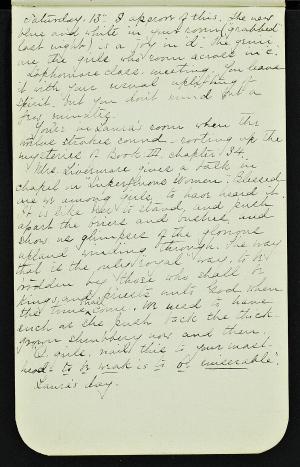 Saturday, 13th. I approve of this. The new
blue and white in your room (grabbed
last night) is a joy in d. The grim
are the girls who room across in c.
Sophomore class meeting. You leave
it with your usual uplifting
spirit. But you don't mind for a
few minutes.
You're in Laura's room when the
strokes sound - rooting up the
mysteries of Book III, chapter 34.
Mrs. Livermore gives a talk in
chapel on "Superfluous Women." Blessed
are we among girls to have heard it.
It is like her to stand and push
apart the briers and bushes and
show us glimpses of the glorious
upland winding through. The way
that is the only royal way, to be
trodden by those who shall be
kings and priests unto God when
the time has come. We need to have
such as she push back the thick
grown shrubbery now and then.
O, girls, nail this to your mast-
head: "to be weak is to be miserable".
Laura's day.